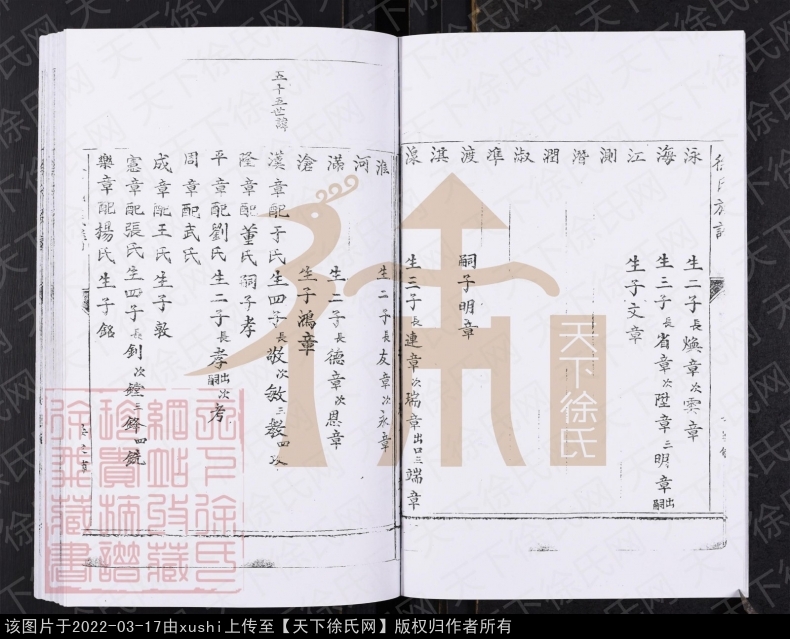 徐氏族譜
泳 生二子長煥章次雯章
海 生三子長省章次陞章三明章出嗣
江 生子文章
測
潛
潤
淑
準
渡 嗣子明章
淇
湶 生三子長連章次瑞章出口三端章
淮 生二子長友章次永章
河
滿 生二子長德章次恩章
滄 生子鴻章
五十五世諱
漢章配于氏生四子長敬次敏三毅四攻
隆章配董氏嗣子孝
平章配劉氏生二子長孝出嗣次考
周章配武氏
成章配王氏生子敦
憲章配張氏生四子長釗次鏜三鋒四銃
樂章配楊氏生子銘
天下徐氏
该图片于2022-03-17由xushi上传至【天下徐氏网】版权归作者所有